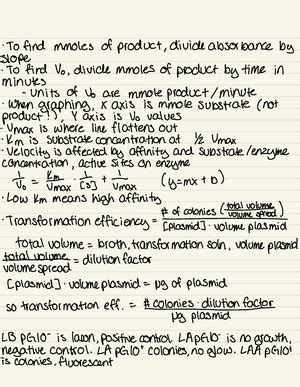 · To find mmoles of product, divide absorbance by
slope
· To find V₀, divide mmoles of product by time in
minutes
- Units of V₀ are mmole product/minute
· When graphing, X axis is mmole substrate (not
product!), Y axis is V₀ values
· Vmax is where line flattens out
· Km is substrate concentration at ½ Vmax
· Velocity is affected by affinity and substrate/enzyme
concentration, active sites on enzyme
1/V₀ = Km/Vmax · 1/[S] + 1/Vmax (y=mx + b)
· Low Km means high affinity
· Transformation efficiency = # of colonies (total volume/volume spread) / [plasmid] · volume plasmid
total volume = broth, transformation soln, volume plasmid
total volume/volume spread = dilution factor
[plasmid] · volume plasmid = µg of plasmid
so transformation eff. = # colonies · dilution factor / µg plasmid
LB pGLO⁻ is lawn, positive control. LA pGLO⁻ is no growth,
negative control. LA pGLO⁺ colonies, no glow. LAA pGLO⁺
is colonies, fluorescent